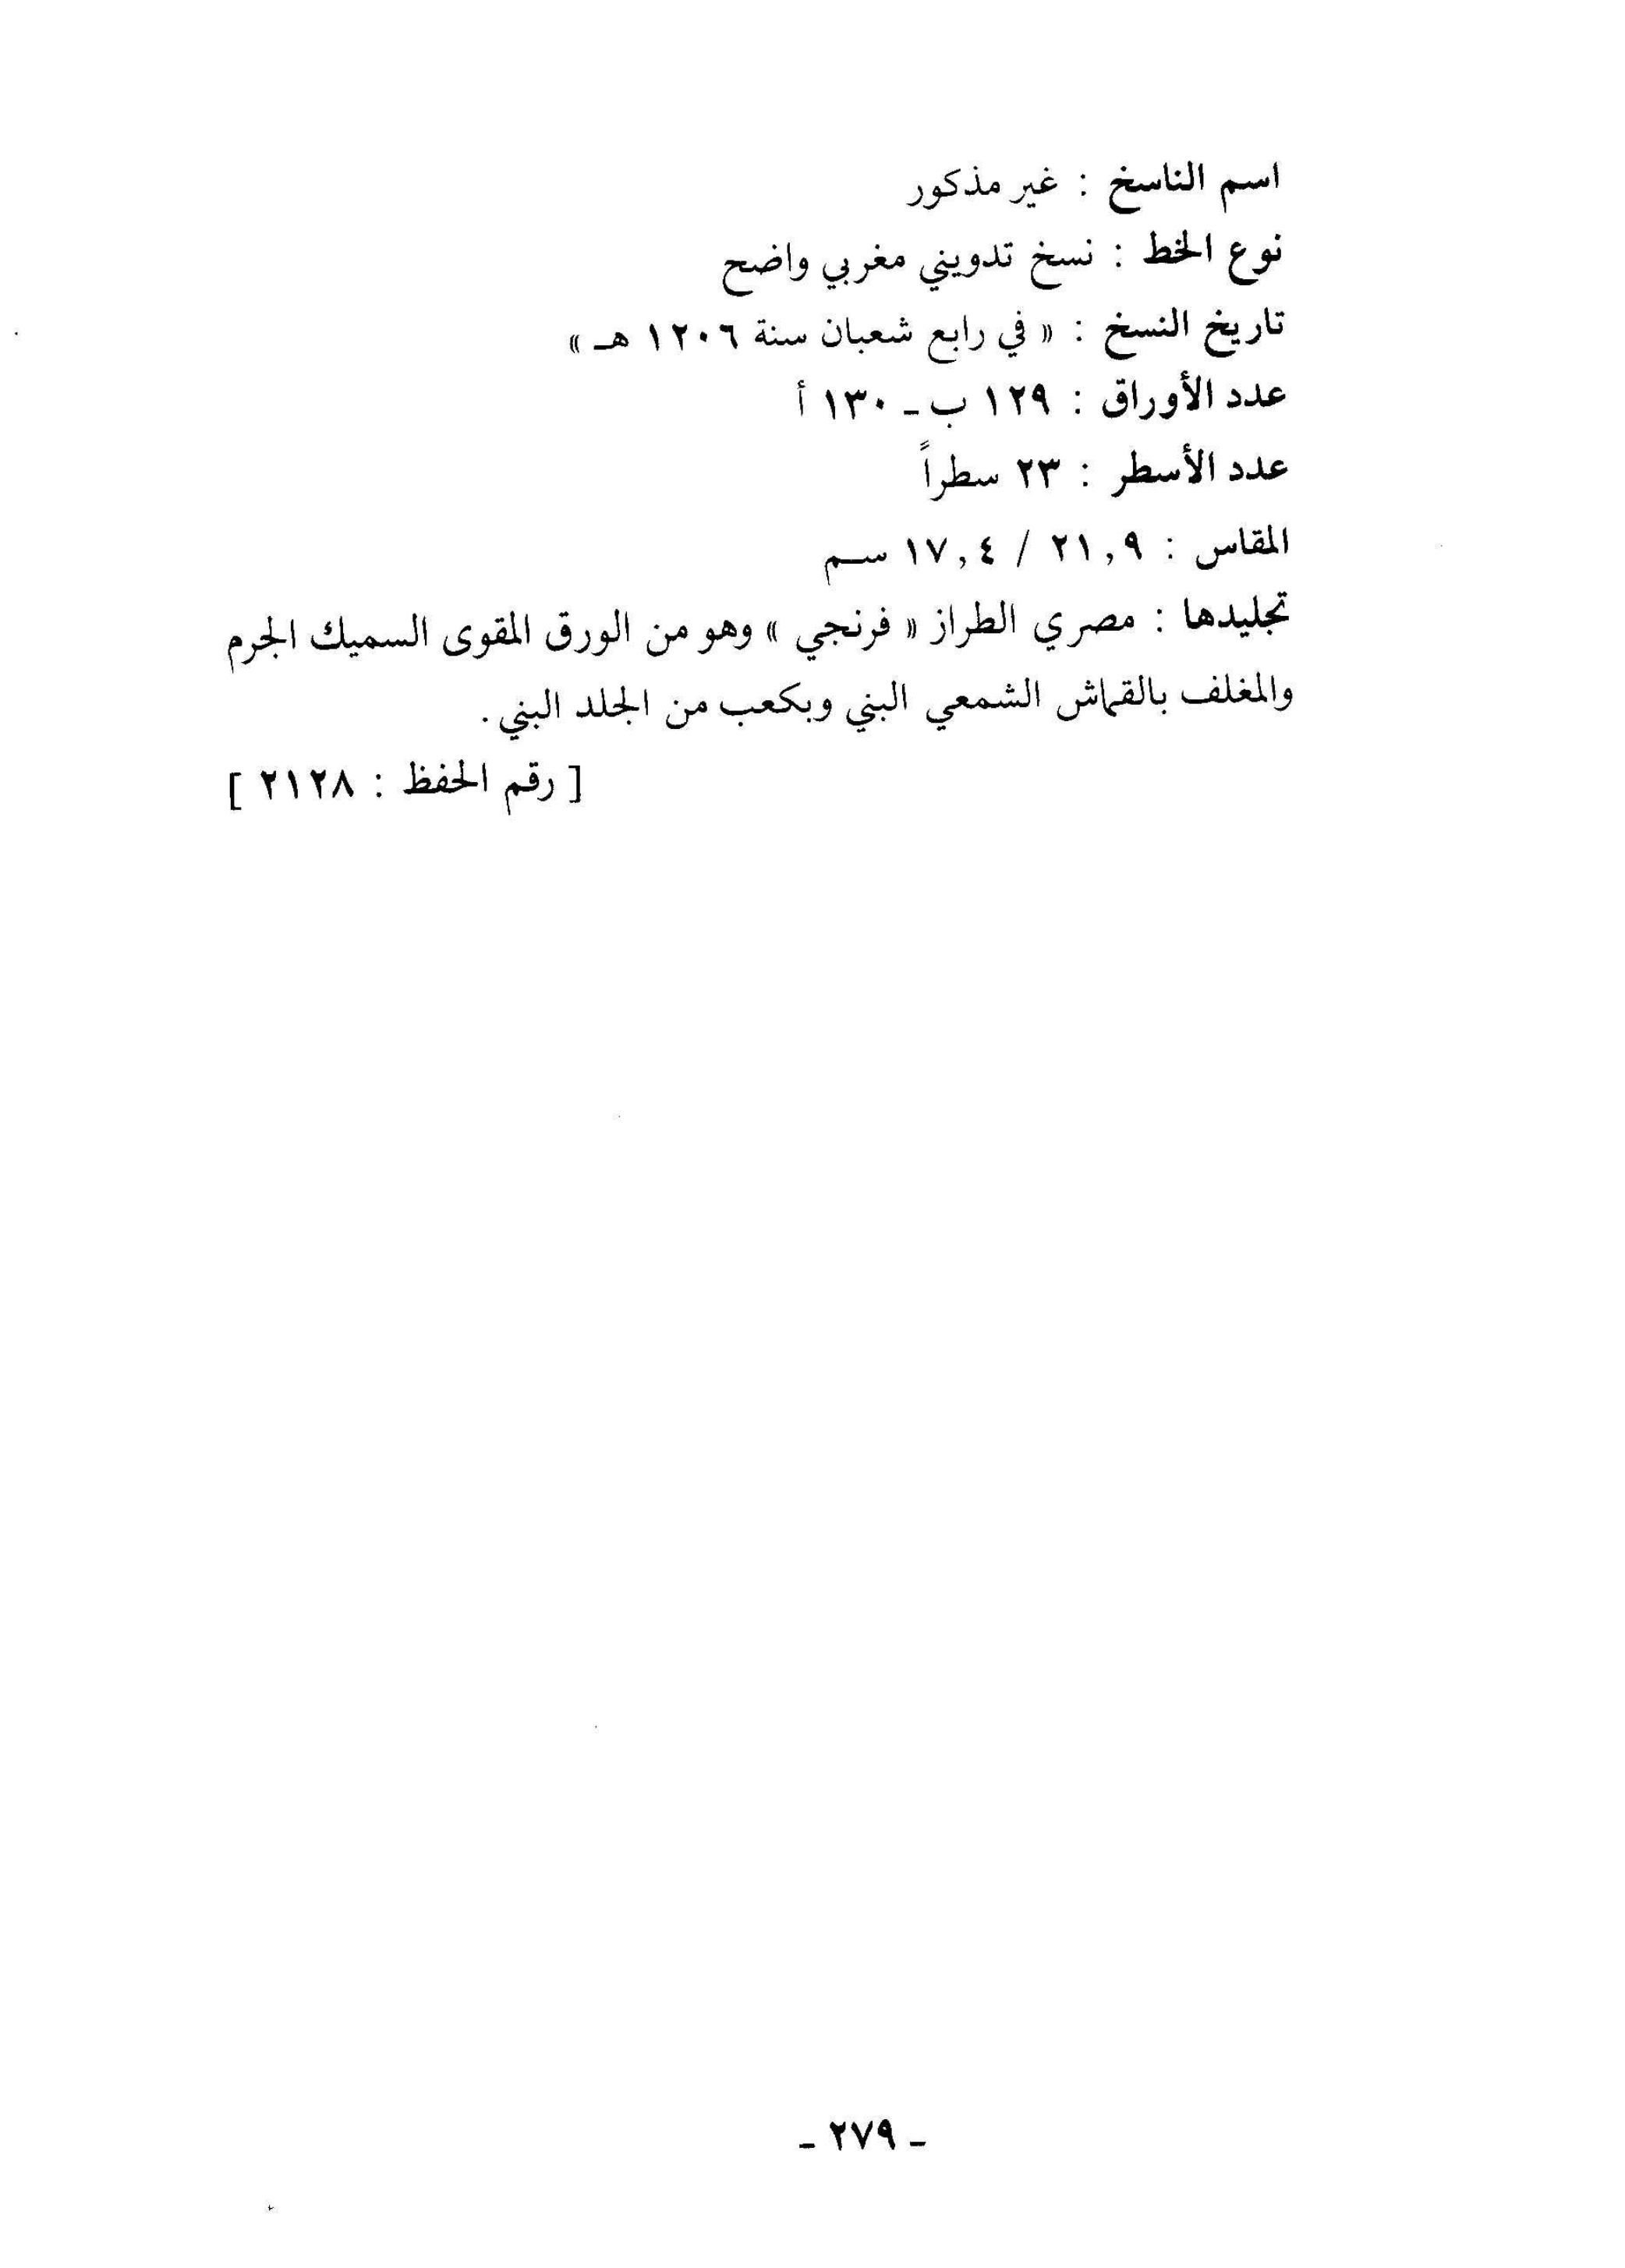 اسم الناسخ : غير مذكور
نوع الخط : نسخ تدويني مغربي واضح
تاريخ النسخ : « في رابع شعبان سنة ١٢٠٦ هـ »
عدد الأوراق : ١٢٩ ب ـ ١٣٠ أ
عدد الأسطر : ٢٣ سطراً
المقاس : ٢١,٩ / ١٧,٤ سـم
تجليدها : مصري الطراز « فرنجي » وهو من الورق المقوى السميك الجرم
والمغلف بالقماش الشمعي البني وبكعب من الجلد البني .
[ رقم الحفظ : ٢١٢٨ ]
ـ ٢٧٩ ـ